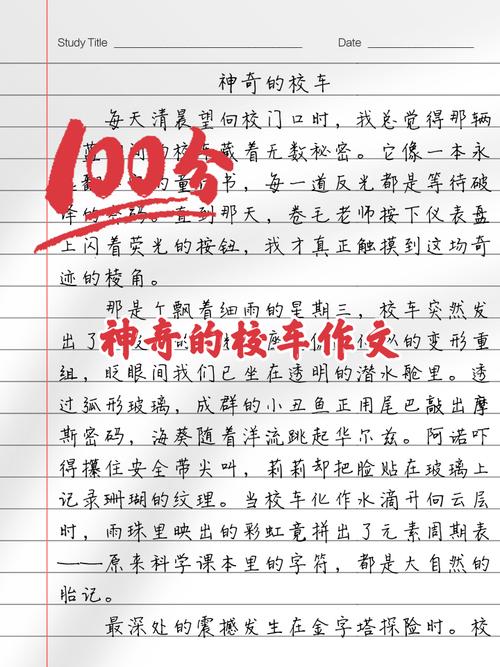 Study Title
Date
神奇的校车
每天清晨望向校门口时，我总觉得那辆
的校车藏着无数秘密。它像一本永
书，每一道反光都是等待破
译的密码。直到那天，卷毛老师按下仪表盘
上闪着荧光的按钮，我才真正触摸到这场奇
迹的棱角。
100分
那是个飘着细雨的星期三，校车突然发
出了
神奇的校车作文
的变形重
组，眨眼间我们已坐在透明的潜水舱里。透
过弧形玻璃，成群的小丑鱼正用尾巴敲出摩
斯密码，海葵随着洋流跳起华尔兹。阿诺吓
得攥住安全带尖叫，莉莉却把脸贴在玻璃上
记录珊瑚的纹理。当校车化作水滴升向云层
时，雨珠里映出的彩虹竟拼出了元素周期表
——原来科学课本里的字符，都是大自然的
胎记。
最深处的震撼发生在金字塔探险时。校